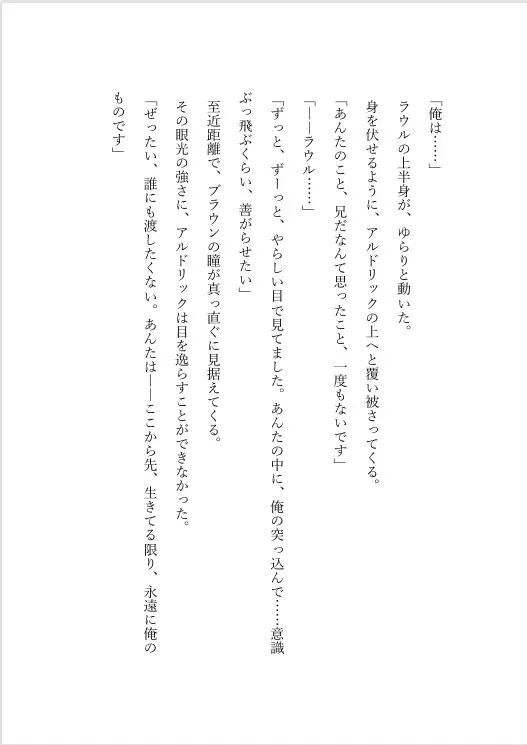 「俺は……」
ラウルの上半身が、ゆらりと動いた。
身を伏せるように、アルドリックの上へと覆い被さってくる。
「あんたのこと、兄だなんて思ったこと、一度もないです」
「――ラウル……」
「ずっと、ずーっと、やらしい目で見てました。あんたの中に、俺の突っ込んで……意識
ぶっ飛ぶくらい、善がらせたい」
至近距離で、ブラウンの瞳が真っ直ぐに見据えてくる。
その眼光の強さに、アルドリックは目を逸らすことができなかった。
「ぜったい、誰にも渡したくない。あんたは――ここから先、生きてる限り、永遠に俺の
ものです」